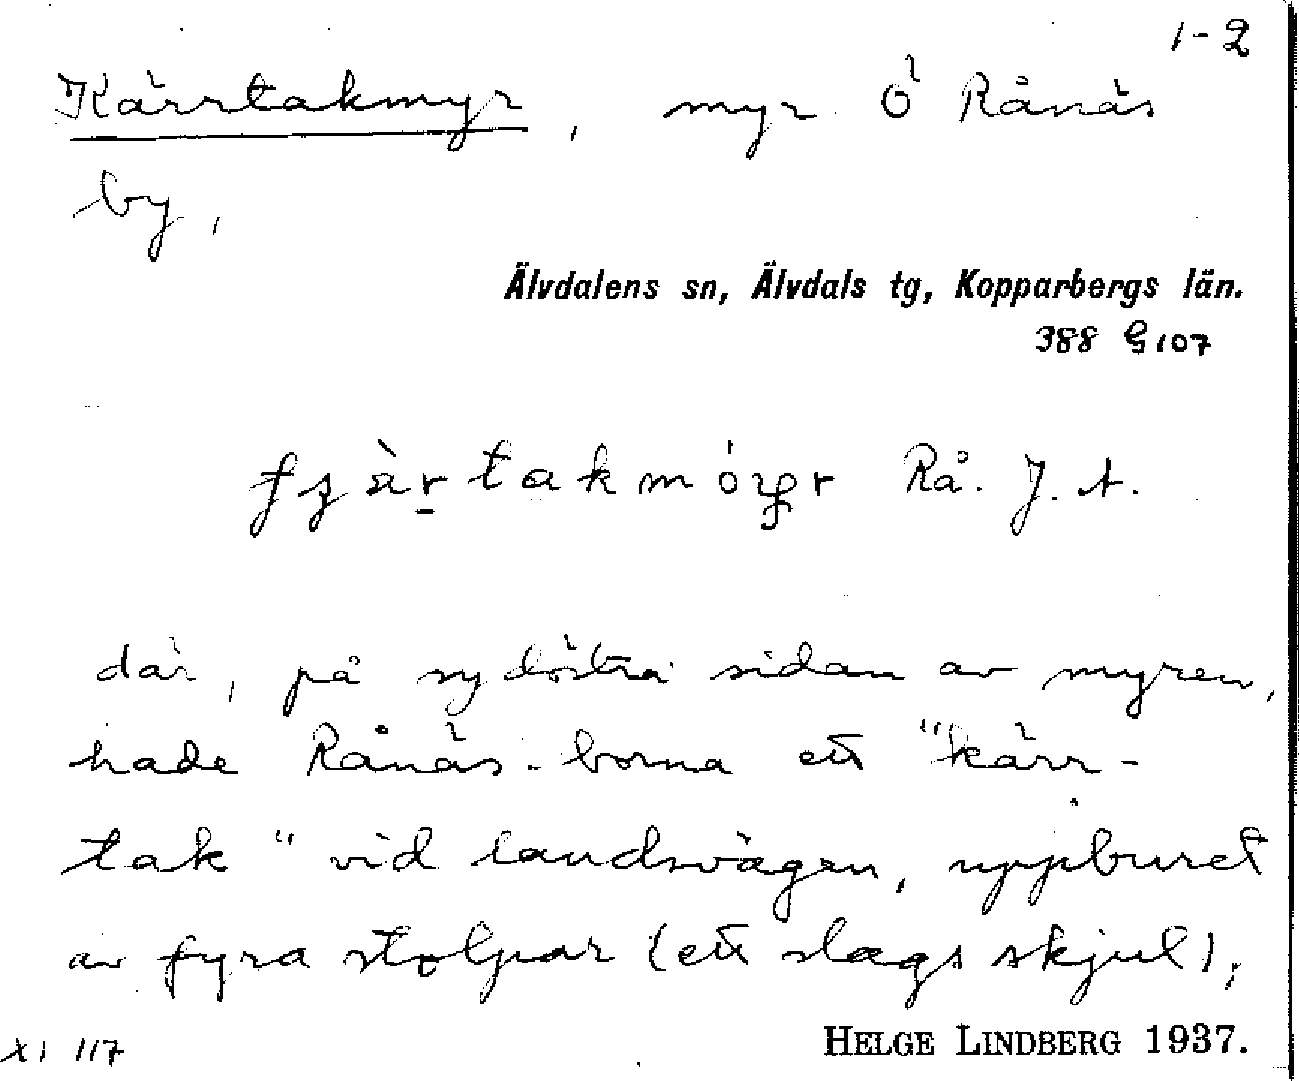 1-2
Kärrtakmyr, myr Ö Rånäs
by,
Älvdalens sn, Älvdals tg, Kopparbergs län.
388 G 107
Rå. J. A.
där, på sydöstra sidan av myren,
hade Rånäs-borna ett "kärr-
tak" vid landsvägen, uppburet
av fyra stolpar (ett slags skjul),
XI 117
HELGE LINDBERG 1937.